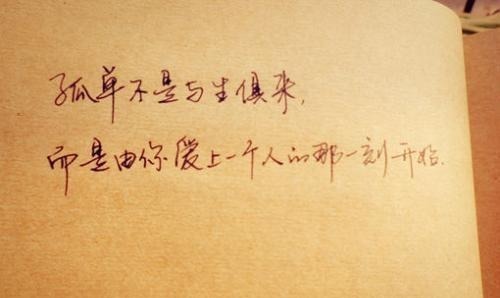 孤单不是与生俱来,
而是由你爱上一个人的那一刻开始.